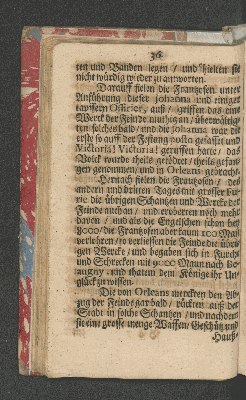 36.
ten und Banden legen / und hielten sie
nicht würdig wieder zu antworten.
Darauff fielen die Frantzosen unter
Anführung dieser Johanna und einiger
tapffern Officier, auß / griffen das eine
Werck der Feinde muthig an / überwältig-
ten solches bald / und die Johanna war die
erste so auff der Festung posto gefasst und
Victoria! Victoria! geruffen hatte / das
Volck wurde theils getödtet / theils gefan-
gen genommen / und in Orleans gebracht.
Hernach fielen die Frantzosen / des
andern und dritten Tages mit grosser Fu-
rie die übrigen Schantzen und Wercke der
Feinde auch an / und eroberten noch mehr
davon / und als die Engelischen schon bey
8000 / die Frantzosen aber kaum 100 Mañ
verlohren / so verliessen die Feinde die übri-
gen Wercke / und begaben sich in Furcht
und Schrecken mit 9000 Mann nach Bo-
augny und thaten dem Könige ihr Un-
glück zu wissen.
Die von Orleans merckten den Ab-
zug der Feinde gar bald / rückten auß der
Stadt in solche Schantzen / und nachdem
sie eine grosse menge Waffen / Geschütz und
Hauß-